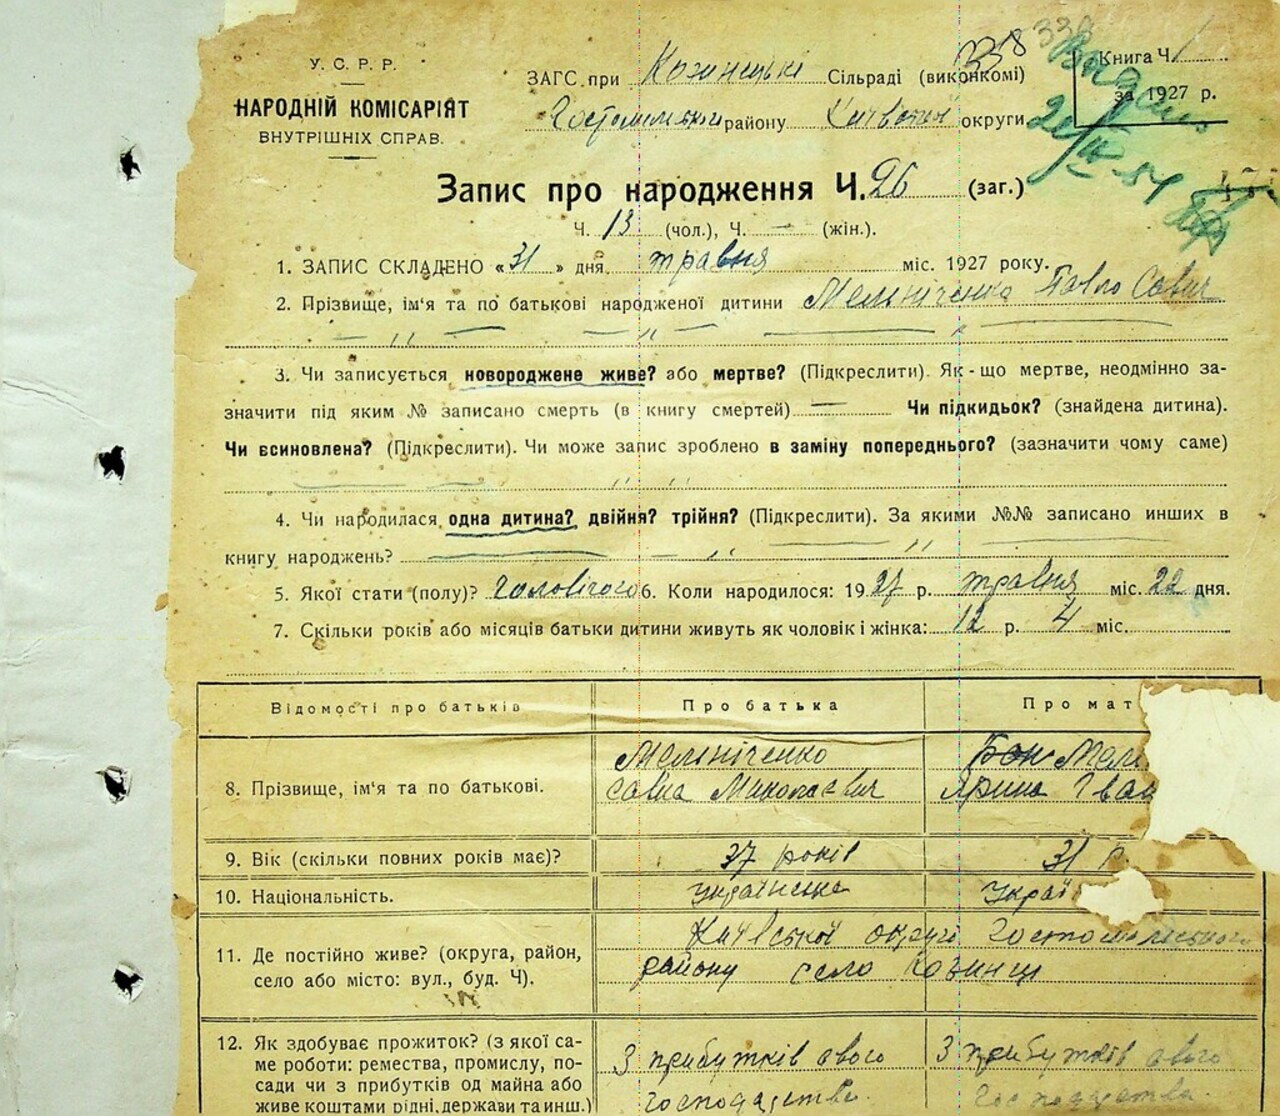 У. С. Р. Р.
НАРОДНІЙ КОМІСАРІЯТ
ВНУТРІШНІХ СПРАВ.
ЗАГС при Козинецькі Сільраді (виконкомі)
Гостомльський району Київської округи
338
Книга Ч. 1
за 1927 р.
Запис про народження Ч. 26 (заг.)
Ч. 13 (чол.), Ч. — (жін.).
1. ЗАПИС СКЛАДЕНО «31» дня травня міс. 1927 року.
2. Прізвище, ім'я та по батькові народженої дитини Мельніченко Павло Савич
3. Чи записується новороджене живе? або мертве? (Підкреслити). Як-що мертве, неодмінно за-
значити під яким № записано смерть (в книгу смертей) — Чи підкидьок? (знайдена дитина).
Чи всиновлена? (Підкреслити). Чи може запис зроблено в заміну попереднього? (зазначити чому саме)
4. Чи народилася одна дитина? двійня? трійня? (Підкреслити). За якими №№ записано инших в
книгу народжень?
5. Якої стати (полу)? Чоловічого 6. Коли народилося: 1927 р. травня міс. 22 дня.
7. Скільки років або місяців батьки дитини живуть як чоловік і жінка: 12 р. 4 міс.
Відомості про батьків
Про батька
Про мат
8. Прізвище, ім'я та по батькові.
Мельніченко
Савка Миколаєвич
Мель
Ярина Іван
9. Вік (скільки повних років має)?
37 років
31 р.
10. Національність.
Українська
Украї
11. Де постійно живе? (округа, район,
село або місто: вул., буд. Ч).
Київської округи Гостомльського
району село Козинці
12. Як здобуває прожиток? (з якої са-
ме роботи: ремества, промислу, по-
сади чи з прибутків од майна або
живе коштами рідні, держави та инш.)
З прибутків свого
господарства.
З прибутків свого
господарства.